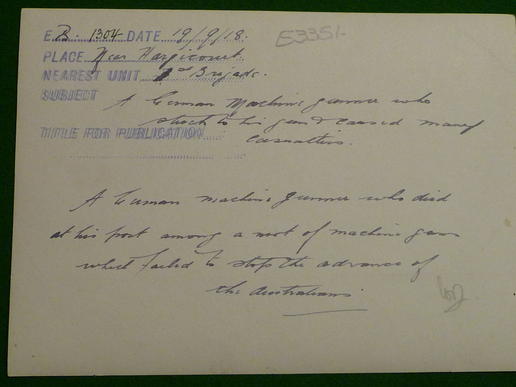 E B. 1304 DATE 19/9/18.
E3351
PLACE Near Hargicourt
NEAREST UNIT 2nd Brigade.
SUBJECT
A German Machine gunner who
stuck to his gun & caused many
TITLE FOR PUBLICATION
casualties.
A German machine gunner who died
at his post among a nest of machine guns
which failed to stop the advance of
the Australians